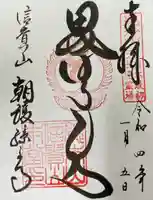 奉拝
令和四年
一月五日
毘沙門天
信貴山
朝護孫子寺